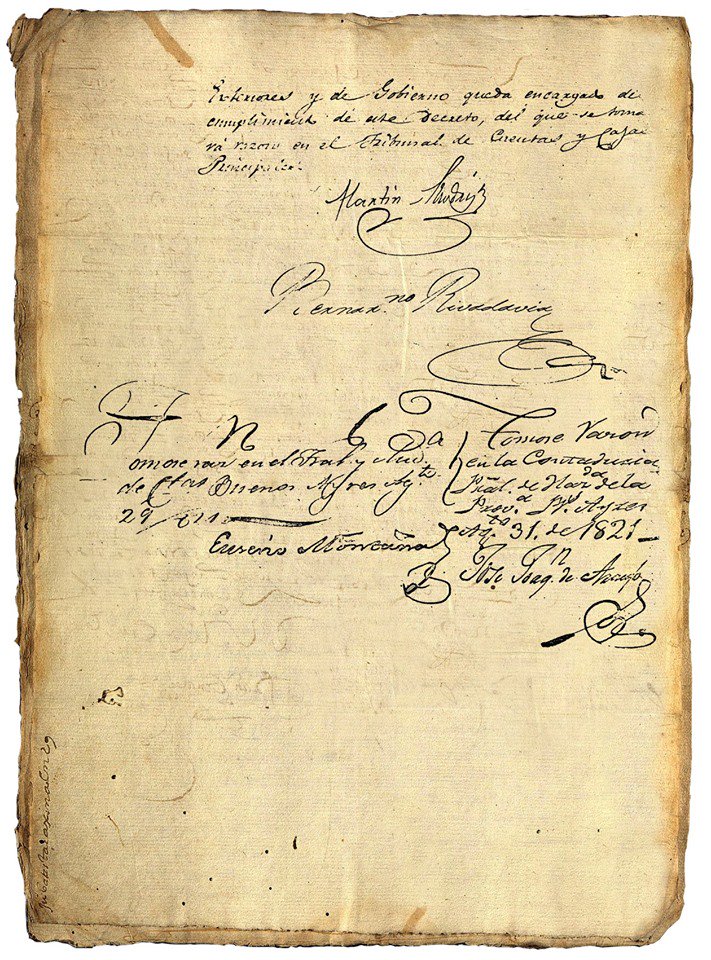 Exteriores y de Gobierno queda encargado de
cumplimiento de este Decreto, del que se toma
rá razon en el Tribunal de Cuentas y Cajas
Principales.
Martin Rodrig.z
Bernar.no Rivadavia
Tomose raz.n en el Trib.l y Aud.a
de C.tas Buenos Ayres Ag.to
29 / 21
Eusevio Montaña
Tomose Razon
en la Contaduria
Pral. de Haz.da de la
Prov.a B.s Ayres
Ag.to 31. de 1821
José Joaq.n de Araujo